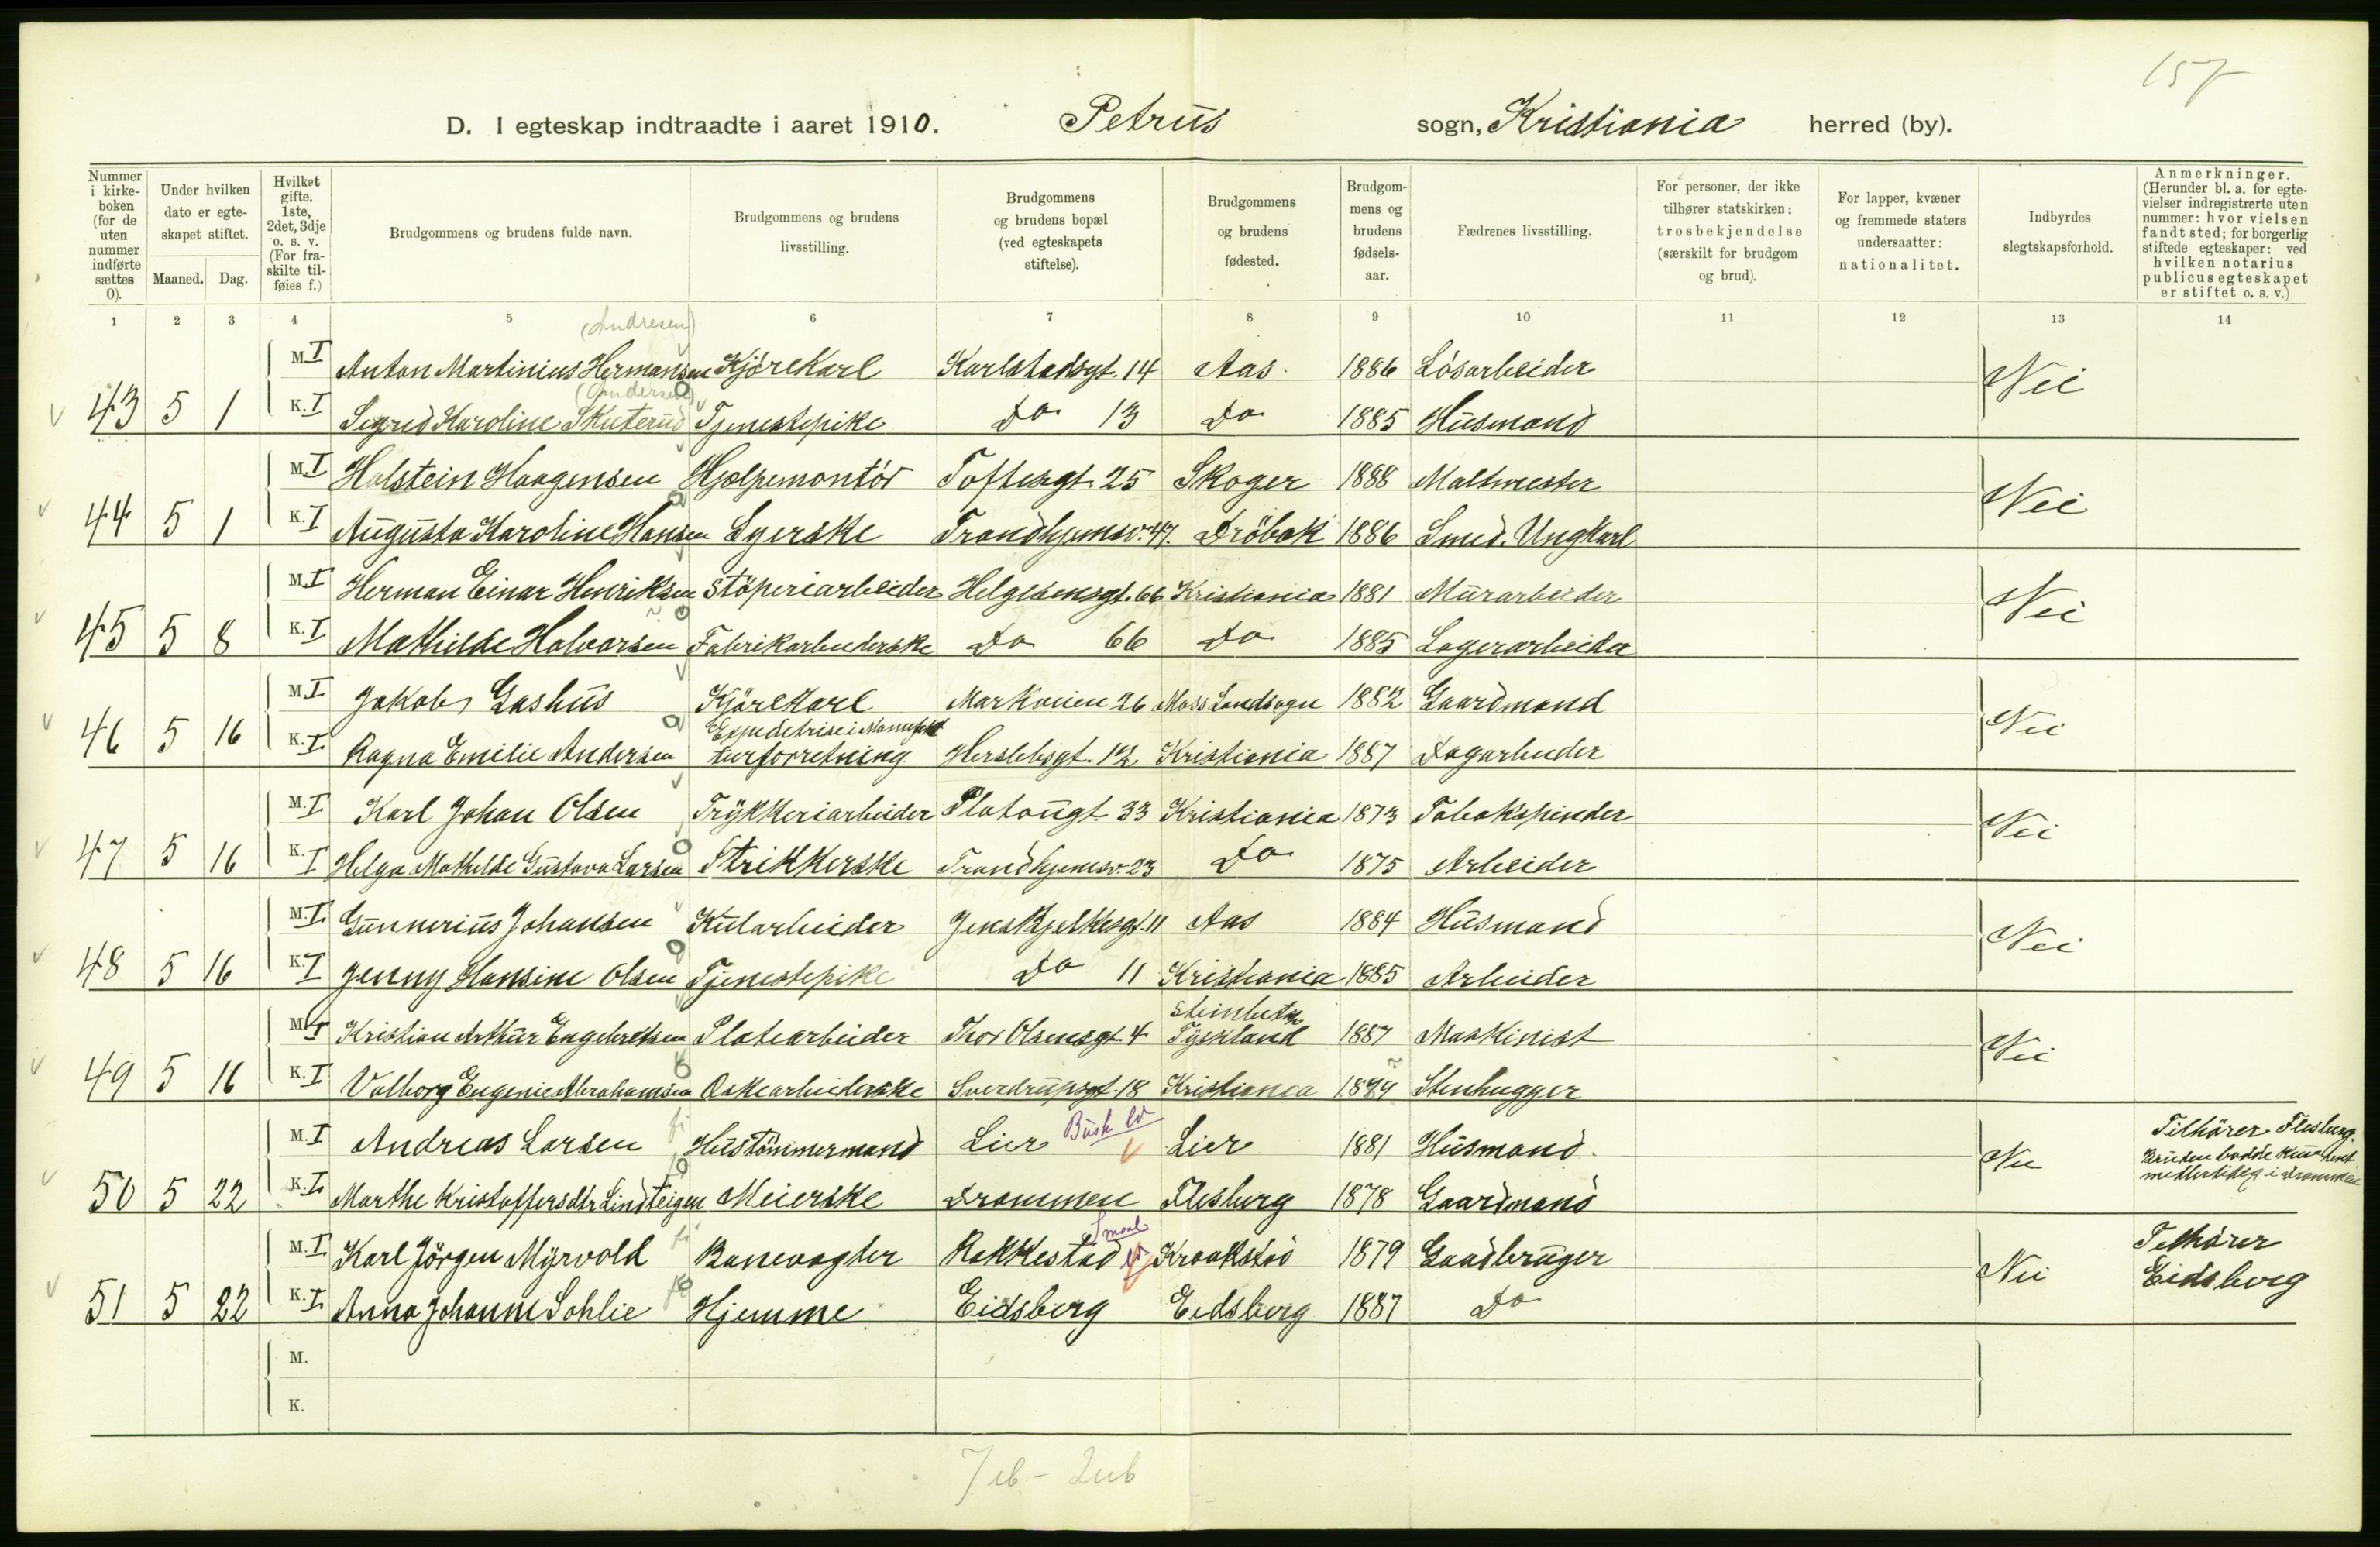 157
D. I egteskap indtraadte i aaret 1910. Petrus sogn, Kristiania herred (by).
Nummer i kirkeboken (for de uten nummer indførte sættes 0).
Under hvilken dato er egteskapet stiftet. Maaned. Dag.
Hvilket gifte. 1ste, 2det, 3dje o. s. v. (For fraskilte tilføies f.)
Brudgommens og brudens fulde navn.
Brudgommens og brudens livsstilling.
Brudgommens og brudens bopæl (ved egteskapets stiftelse).
Brudgommens og brudens fødested.
Brudgommens og brudens fødselsaar.
Fædrenes livsstilling.
For personer, der ikke tilhører statskirken: trosbekjendelse (særskilt for brudgom og brud).
For lapper, kvæner og fremmede staters undersaatter: nationalitet.
Indbyrdes slegtskapsforhold.
Anmerkninger. (Herunder bl. a. for egtevielser indregistrerte uten nummer: hvor vielsen fandt sted; for borgerlig stiftede egteskaper: ved hvilken notarius publicus egteskapet er stiftet o. s. v.)
1 2 3 4 5 6 7 8 9 10 11 12 13 14
(Andresen)
M. I Anton Martinius Hermansen Kjörekarl Karlstadsgt. 14 Aas. 1886 Lösarbeider
(Andersen)
43 5 1 K. I Sigrid Karoline Skuterud Tjenestepike Do 13 Do 1885 Husmand Nei
M. I Holstein Haagensen Hjælpemontör Toftesgt. 25 Skoger 1888 Maltmester
44 5 1 K. I Augusta Karoline Hansen Syerske Trondhjemsv. 47. Dröbak 1886 Smed. Ungkarl Nei
M. I Herman Einar Henriksen Stöperiarbeider Helgesensgt. 66 Kristiania 1881 Murarbeider
45 5 8 K. I Mathilde Halvorsen Fabrikarbeiderske Do 66 Do 1885 Lagerarbeider Nei
M. I Jakob Gashus Kjörekarl Markveien 26 Moss Landsogn 1882 Gaardmand
46 5 16 K. I Ragna Emilie Andersen Expeditrise i Manufakturforretning Herslebsgt. 12 Kristiania 1887 Dagarbeider Nei
M. I Karl Johan Olsen Trykkeriarbeider Platougt. 33 Kristiania 1873 Tobakspinder
47 5 16 K. I Helga Mathilde Gustava Larsen Strikkerske Trondhjemsv. 23 Do 1875 Arbeider Nei
M. I Gunnerius Johansen Kularbeider Jens Bjelkesgt. 11 Aas 1884 Husmand
48 5 16 K. I Jenny Hansine Olsen Tjenestepike Do 11 Kristiania 1885 Arbeider Nei
M. I Kristian Arthur Engebretsen Platearbeider Thor Olsensgt. 4 Tyskland 1887 Maskinist
49 5 16 K. I Valborg Eugenie Abrahamsen Æskearbeiderske Sverdrupsgt. 18 Kristiania Stenhugger Nei
M. I Andreas Larsen Hustömmermand Lier Busk Lier 1881 Husmand. Tilhörer Flesberg.
50 5 22 K. I Marthe Kristoffersdtr Lindteigen Meierske Drammen Flesberg 1878 Gaardmand Nei Bruden bodde kun midlertidig i Drammen
M. I Karl Jörgen Myrvold Banevogter Rakkestad Smaal Kraakstad 1879 Gaardbruger Tilhörer
51 5 22 K. I Anna Johanne Sohlie Hjemme Eidsberg Eidsberg 1887 Do Nei Eidsberg
M.
K.
7 ib - 2 ub